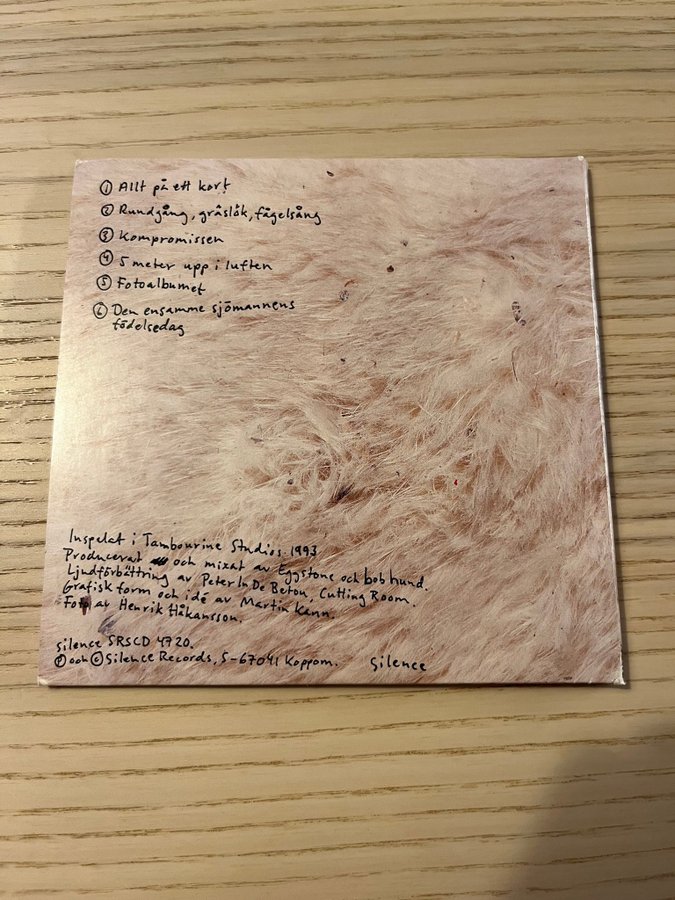 ① Allt på ett kort
② Rundgång, gräslök, fågelsång
③ Kompromissen
④ 5 meter upp i luften
⑤ Fotoalbumet
⑥ Den ensamme sjömannens
födelsedag
Inspelat i Tambourine Studios 1993
Producerat och mixat av Eggstone och bob hund.
Ljudförbättring av Peter In De Betou, Cutting Room.
Grafisk form och idé av Martin Kann.
Foto av Henrik Håkansson.
silence SRSCD 4720.
℗ och © Silence Records, S-67041 Koppom.
Silence